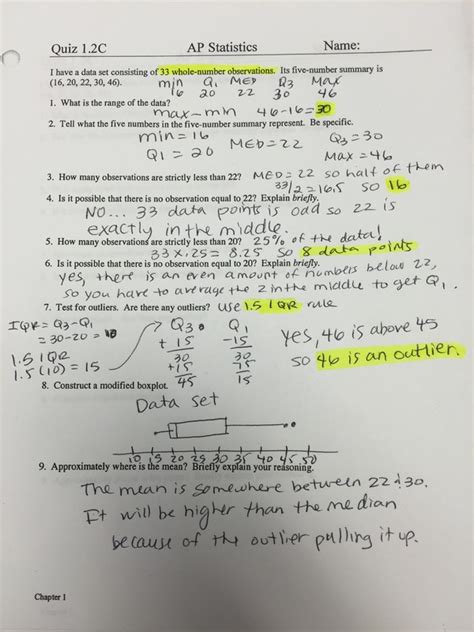 Quiz 1.2C AP Statistics Name:
I have a data set consisting of 33 whole-number observations. Its five-number summary is
(16, 20, 22, 30, 46). min Q1 MED Q3 Max
16 20 22 30 46
1. What is the range of the data?
max - min 46-16=30
2. Tell what the five numbers in the five-number summary represent. Be specific.
min = 16 MED=22 Q3=30
Q1 = 20 Max = 46
3. How many observations are strictly less than 22? MED=22 so half of them
33/2=16.5 so 16
4. Is it possible that there is no observation equal to 22? Explain briefly.
NO... 33 data points is odd so 22 is
exactly in the middle.
5. How many observations are strictly less than 20? 25% of the data!
33 x .25 = 8.25 So 8 data points
6. Is it possible that there is no observation equal to 20? Explain briefly.
yes, there is an even amount of numbers below 22,
so you have to average the 2 in the middle to get Q1.
7. Test for outliers. Are there any outliers? Use 1.5 IQR rule
IQR= Q3-Q1
= 30-20 = 10
1.5 IQR
1.5 (10) = 15
Q3 Q1
+ 15 -15
30 30
+15 15
45 15
yes, 46 is above 45
so 46 is an outlier.
8. Construct a modified boxplot.
Data set
10 15 20 25 30 35 40 45 50
9. Approximately where is the mean? Briefly explain your reasoning.
The mean is somewhere between 22 & 30.
It will be higher than the median
because of the outlier pulling it up.
Chapter 1